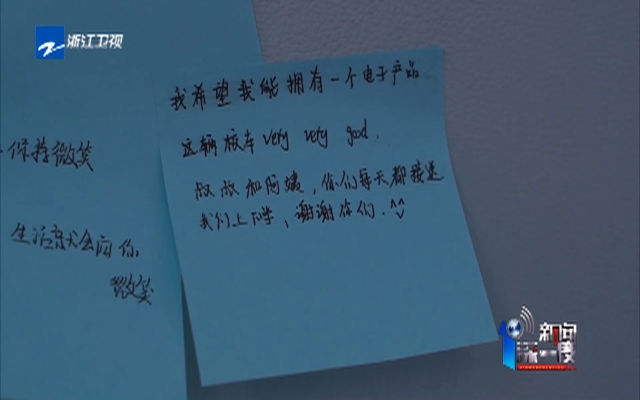 浙江卫视
保持微笑
生活就会向你
微笑
我希望我能拥有一个电子产品
这辆校车very very good.
叔叔和阿姨，你们每天都接送
我们上下学，谢谢你们.^^
新闻
深一度